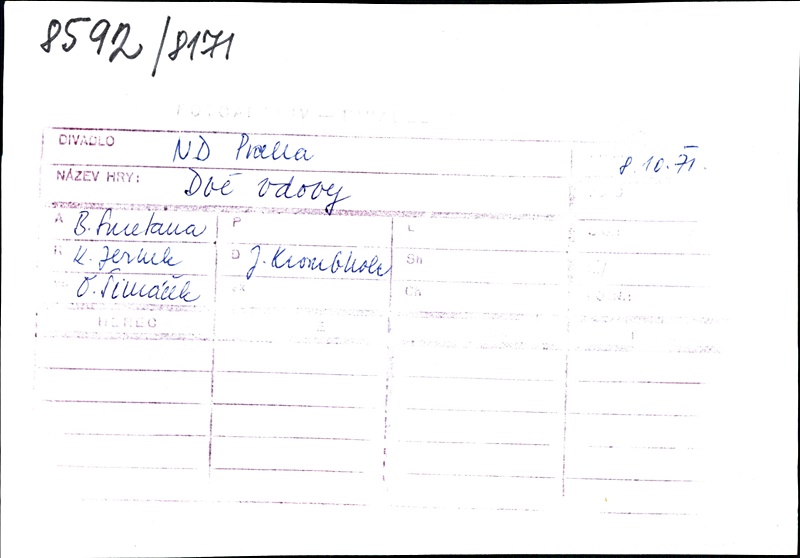 8592/8171
DIVADLO ND Praha 8.10.71.
NÁZEV HRY: Dvě vdovy
A B. Smetana P L
R K. Jernek D J. Krombholc Sh
O. Šimáček Ch
HEREC